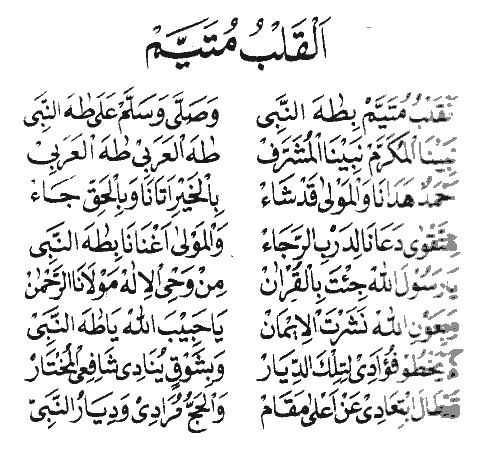 اَلْقَلْبُ مُتَيَّمْ
مُتَيَّمْ بِطٰهَ النَّبِى وَصَلَّى وَسَلَّمْ عَلَى طٰهَ النَّبِى
نَبِيْنَا الْمُكَرَّمْ نَبِيْنَا الْمُشَرَّفْ طٰهَ الْعَرَبِىْ طٰهَ الْعَرَبِىْ
هَدَانَا وَالْمَوْلٰى قَدْ شَاءْ بِالْخَيْرِ اَتَانَا وَبِالْحَقِّ جَاءْ
دَعَانَا لِدَرْبِ الرَّجَاءْ وَالْمَوْلٰى اَغْنَانَا بِطٰهَ النَّبِى
يَارَسُوْلَ اللّٰهْ جِئْتَ بِالْقُرْاٰنْ مِنْ وَحْىِ الْاِلٰهْ مَوْلَانَا الرَّحْمٰنْ
اللّٰهْ نَشَرْتَ الْاِيْمَانْ يَا حَبِيْبَ اللّٰهْ يَا طٰهَ النَّبِى
يَخْطُوْ فُؤَادِىْ لِتِلْكَ الدِّيَارْ وَبِشَوْقٍ يُنَادِىْ شَافِعِى الْمُخْتَارْ
ابْتِعَادِىْ عَنْ اَعْلٰى مَقَامْ وَالْحَجُّ مُرَادِىْ وَدِيَارُ النَّبِى